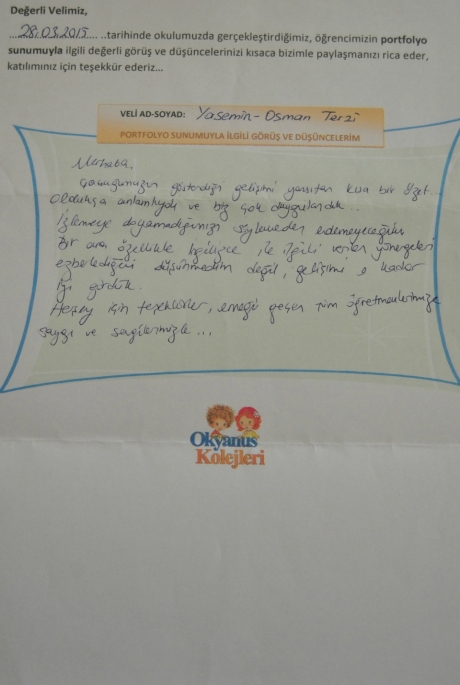 Değerli Velimiz,
...28.03.2015.... ..tarihinde okulumuzda gerçekleştirdiğimiz, öğrencimizin portfolyo
sunumuyla ilgili değerli görüş ve düşüncelerinizi kısaca bizimle paylaşmanızı rica eder,
katılımınız için teşekkür ederiz...
VELİ AD-SOYAD: Yasemin - Osman Terzi
PORTFOLYO SUNUMUYLA İLGİLİ GÖRÜŞ VE DÜŞÜNCELERİM
Merhaba,
Çocuğumuzun gösterdiği gelişimi yansıtan kısa bir özet..
Oldukça anlamlıydı ve biz çok duygulandık...
İzlemeye doyamadığımızı söylemeden edemeyeceğim
Bir ara özellikle İngilizce ile ilgili verilen yönergeleri
ezberlediğini düşünmedim değil, gelişimi o kadar
iyi gördük.
Herşey için teşekkürler, emeği geçen tüm öğretmenlerimize
saygı ve sevgilerimizle...
Okyanus
Kolejleri